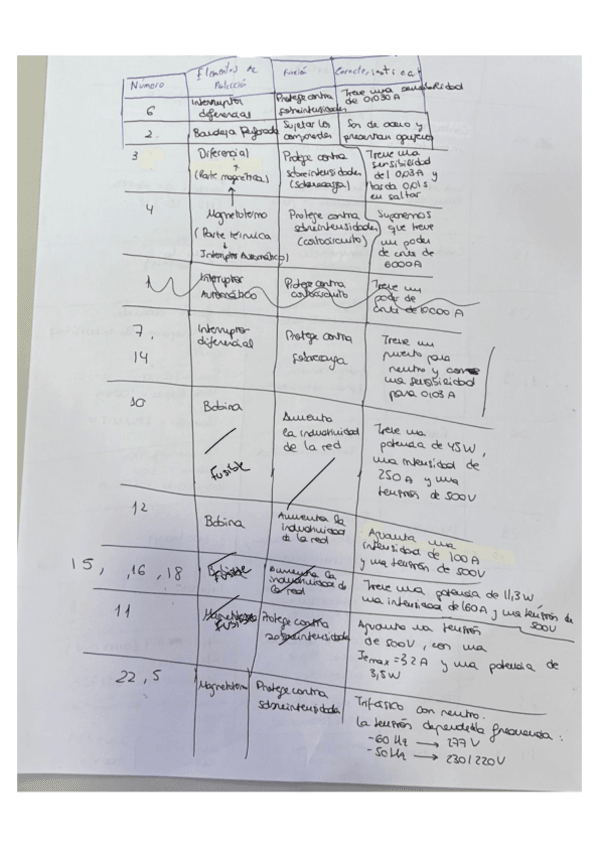 Número
Elementos de Protección
Función
Características
6
Interruptor diferencial
Protege contra sobreintensidades
Tiene una sensibilidad de 0,030A
2
Bandeja Perforada
Sujetar los componentes
Son de acero y presentan agujeros
3
Diferencial
(Parte magnética)
Protege contra
sobreintensidades
(Sobrecarga)
Tiene una
sensibilidad
de 0,03A y
tarda 0,01s
en saltar
4
Magnetotermo
(Parte térmica
Interruptor Automático)
Protege contra
sobreintensidades
(cortocircuito)
Suponemos
que tiene
un poder
de corte de
6000A
1
Interruptor
Automático
Protege contra
cortocircuito
Tiene un
poder de
corte de 10000 A
7,
14
Interruptor
diferencial
Protege contra
sobrecarga
Tiene un
puerto para
neutro y
una sensibilidad
para 0,03A
10
Bobina
Fusible
Aumenta
la inductividad
de la red
Tiene una
potencia de 45W,
una intensidad de
250A y una
tensión de 500V
12
Bobina
Aumenta la
inductividad
de la red
Aguanta una
intensidad de 100A
y una tensión de 500V
15, ,16, 18
Aumenta la
inductividad de
la red
Tiene una potencia de 11,3W
una intensidad de 160A y una tensión de
500V
11
Fusible
Protege contra
sobreintensidades
Aguanta una tensión
de 500V, con una
Iemax=32A y una potencia de
3,5W
22,5
Magnetotermo
Protege contra
sobreintensidades
Trifásico con neutro.
La tensión depende de la frecuencia:
-60 Hz → 277V
-50Hz → 230/220V